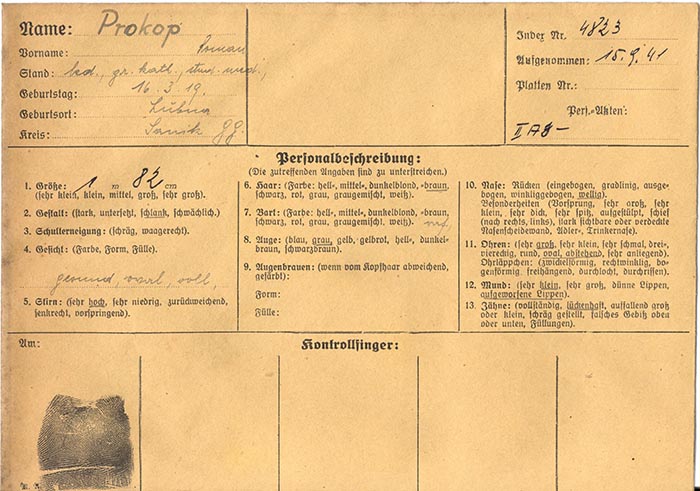 Name: Prokop
Vorname: Roman
Stand: led., gr. kath., stud. med.,
Geburtstag: 16.3.19.
Geburtsort: Lubna
Kreis: Sanik GG.
Index Nr. 4823
Aufgenommen: 15.9.41
Platten Nr.:
Pers.-Akten:
II A3-
Personalbeschreibung:
(Die zutreffenden Angaben sind zu unterstreichen.)
1. Größe: 1 m 82 cm
(sehr klein, klein, mittel, groß, sehr groß).
2. Gestalt: (stark, untersetzt, schlank, schwächlich).
3. Schulterneigung: (schräg, waagerecht).
4. Gesicht: (Farbe, Form, Fülle).
gesund, oval, voll,
5. Stirn: (sehr hoch, sehr niedrig, zurückweichend,
senkrecht, vorspringend).
6. Haar: (Farbe: hell-, mittel-, dunkelblond, -braun,
schwarz, rot, grau, graugemischt, weiß).
7. Bart: (Farbe: hell-, mittel-, dunkelblond, -braun,
schwarz, rot, grau, graugemischt, weiß).
8. Auge: (blau, grau, gelb, gelbrot, hell-, dunkel-
braun, schwarzbraun).
9. Augenbrauen: (wenn vom Kopfhaar abweichend,
gefärbt):
Form:
Fülle:
10. Nase: Rücken (eingebogen, gradlinig, ausge-
bogen, winkliggebogen, wellig).
Besonderheiten (Vorsprung, sehr groß, sehr
klein, sehr dick, sehr spitz, aufgestülpt, schief
(nach rechts, links), stark sichtbare oder verdeckte
Nasenscheidewand, Adler-, Trinkernase).
11. Ohren: (sehr groß, sehr klein, sehr schmal, drei-,
viereckig, rund, oval, abstehend, sehr anliegend).
Ohrläppchen: (zwickelförmig, rechtwinklig, bo-
genförmig, freihängend, durchlocht, durchrissen).
12. Mund: (sehr klein, sehr groß, dünne Lippen,
aufgeworfene Lippen).
13. Zähne: (vollständig, lückenhaft, auffallend groß
oder klein, schräg gestellt, falsches Gebiß oben
oder unten, Füllungen).
Am:
Kontrollfinger: